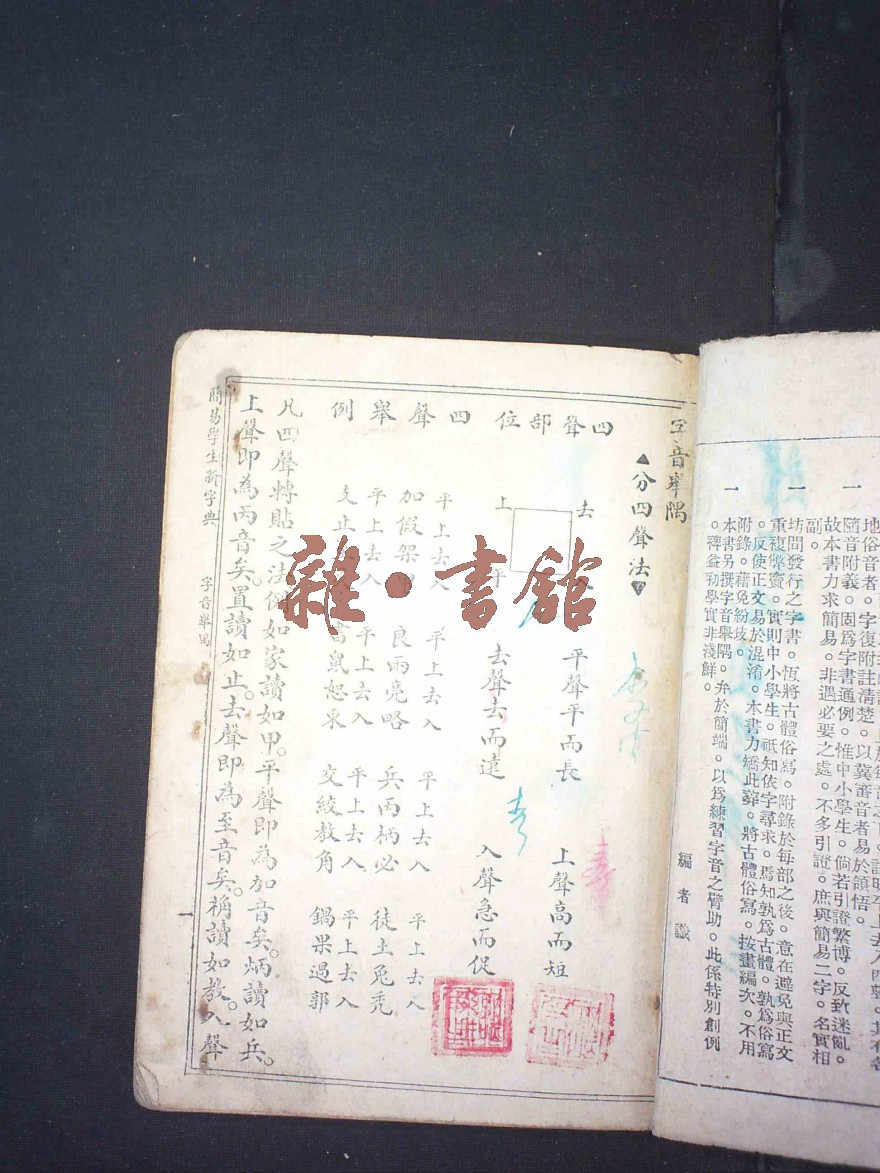 地俗音者。字復附註清楚。以冀審音者易於領悟。
一 隨音附義。固爲字書通例。惟中小學生。倘若引證繁博。反致迷亂。
故本書力求簡易。非遇必要之處。不多引證。庶與簡易二字。名實相
副。
一 坊間發行之字書。恆將古體俗寫。附錄於每部之後。意在避免與正文
重複弊竇。實則中小學生。祇知依字尋求。焉知孰爲古體。孰爲俗寫
。反使正文易於混淆。本書力矯此弊。將古體俗寫。按畫編次。不用
附錄。藉免紛歧。
一 本書另撰字音舉隅。弁於簡端。以爲練習字音之臂助。此係特別創例
。裨益初學實非淺鮮。
編者識
字音舉隅
▲分四聲法▼
四聲部位
去
上 平
平聲平而長
上聲高而短
去聲去而遠
入聲急而促
四聲舉例
平上去入 平上去入 平上去入 平上去入
加假架甲 良兩亮略 兵丙柄必 徒土兔禿
平上去入 平上去入 平上去入 平上去入
支止 書鼠恕 交絞教角 鍋果過郭
凡四聲轉貼之法。倘如家讀如甲。平聲即為加音矣。炳讀如兵。
上聲即為丙音矣。置讀如止。去聲即為至音矣。稱讀如教。入聲
簡易學生新字典
字音舉隅
雜·書館